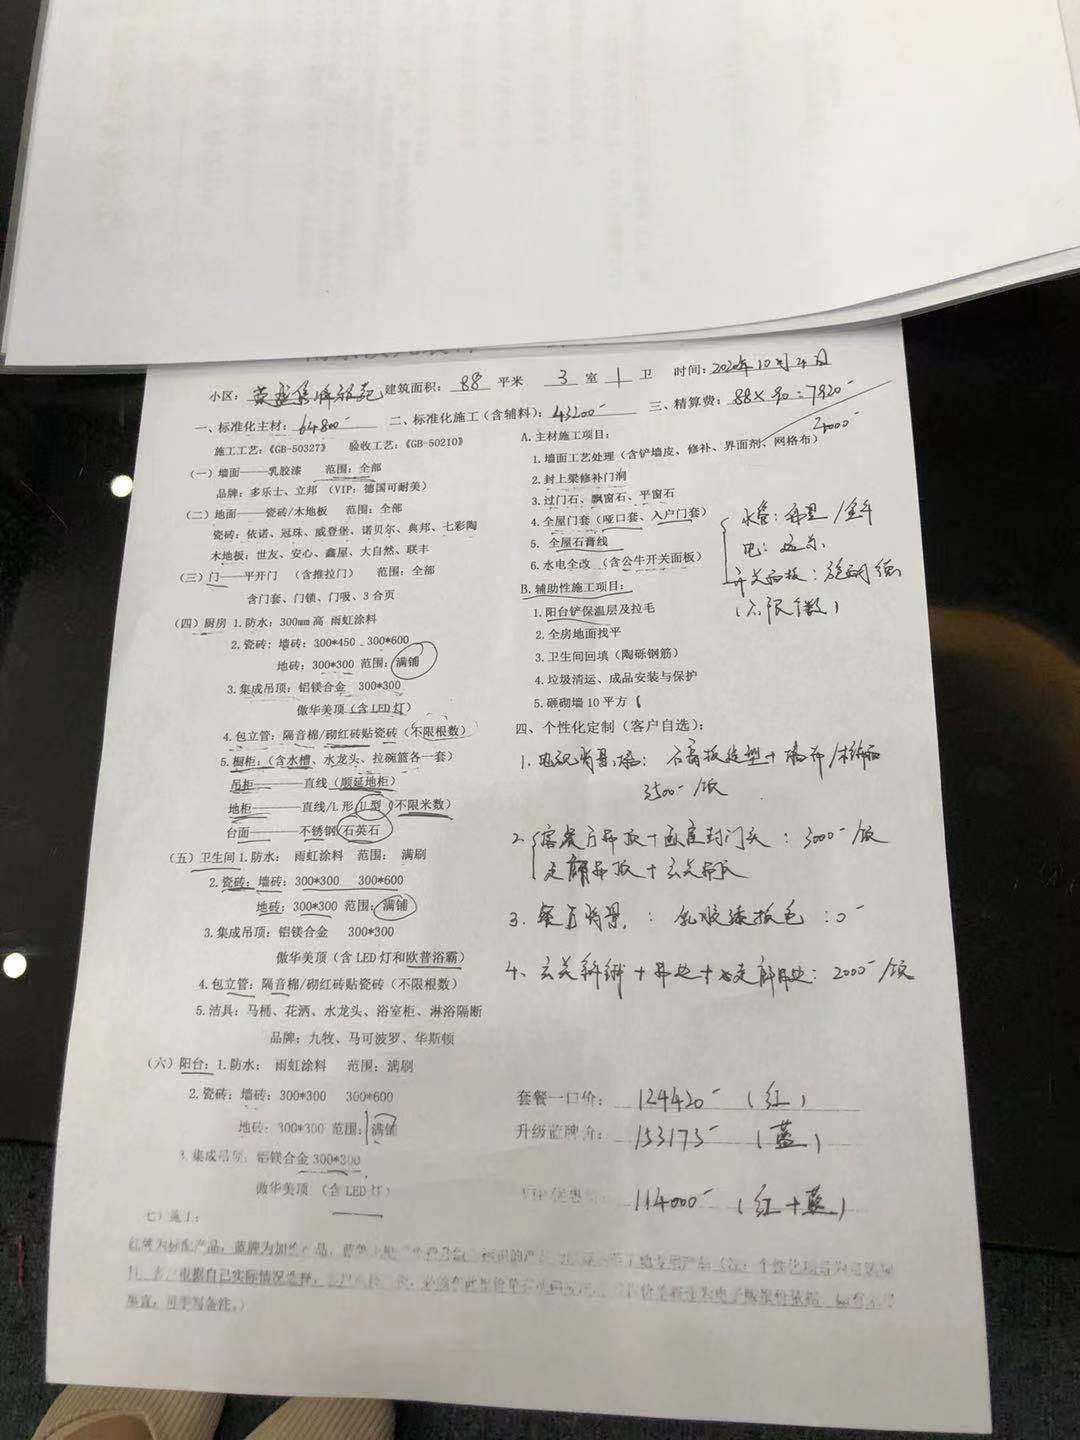 小区： 建筑面积：88 平米 3 室 1 卫 时间：2020年10月4日
一、标准化主材：64800 二、标准化施工（含辅料）：43200 三、精算费：88×90=7920
2000
施工工艺：《GB-50327》 验收工艺：《GB-50210》
（一）墙面——乳胶漆 范围：全部
品牌：多乐士、立邦 （VIP：德国可耐美）
（二）地面——瓷砖/木地板 范围：全部
瓷砖：依诺、冠珠、威登堡、诺贝尔、典邦、七彩陶
木地板：世友、安心、鑫屋、大自然、联丰
（三）门——平开门 （含推拉门） 范围：全部
含门套、门锁、门吸、3合页
（四）厨房 1.防水：300mm高 雨虹涂料
2.瓷砖：墙砖：300*450 300*600
地砖：300*300 范围：满铺
3.集成吊顶：铝镁合金 300*300
傲华美顶（含LED灯）
4.包立管：隔音棉/砌红砖贴瓷砖（不限根数）
5.橱柜：（含水槽、水龙头、拉碗篮各一套）
吊柜————直线（顺延地柜）
地柜————直线/L形/U型（不限米数）
台面————不锈钢/石英石
（五）卫生间 1.防水： 雨虹涂料 范围： 满刷
2.瓷砖：墙砖：300*300 300*600
地砖：300*300 范围：满铺
3.集成吊顶：铝镁合金 300*300
傲华美顶（含LED灯和欧普浴霸）
4.包立管：隔音棉/砌红砖贴瓷砖（不限根数）
5.洁具：马桶、花洒、水龙头、浴室柜、淋浴隔断
品牌：九牧、马可波罗、华斯顿
（六）阳台：1.防水： 雨虹涂料 范围：满刷
2.瓷砖：墙砖：300*300 300*600
地砖：300*300 范围：满铺
3.集成吊顶：铝镁合金 300*300
傲华美顶 （含LED灯）
七）施工：
A.主材施工项目：
1.墙面工艺处理（含铲墙皮、修补、界面剂、网格布）
2.封上梁修补门洞
3.过门石、飘窗石、平窗石
4.全屋门套（哑口套、入户门套）
5. 全屋石膏线
6.水电全改 （含公牛开关面板）
B.辅助性施工项目：
1.阳台铲保温层及拉毛
2.全房地面找平
3.卫生间回填（陶砾钢筋）
4.垃圾清运、成品安装与保护
5.砸砌墙10平方
水管：
电：
开关面板：
（不限个数）
四、个性化定制（客户自选）：
1.电视背景墙：石膏板造型+墙布/
3500/项
2.客餐厅吊顶+ 封门头：3000/项
走廊吊顶+玄关吊顶
3.餐厅背景：乳胶漆换色：0
4.玄关 2000/项
套餐一口价：124420（红）
升级蓝牌价：153175（蓝）
VIP优惠 114000（红+蓝）
根据自己实际情况选择